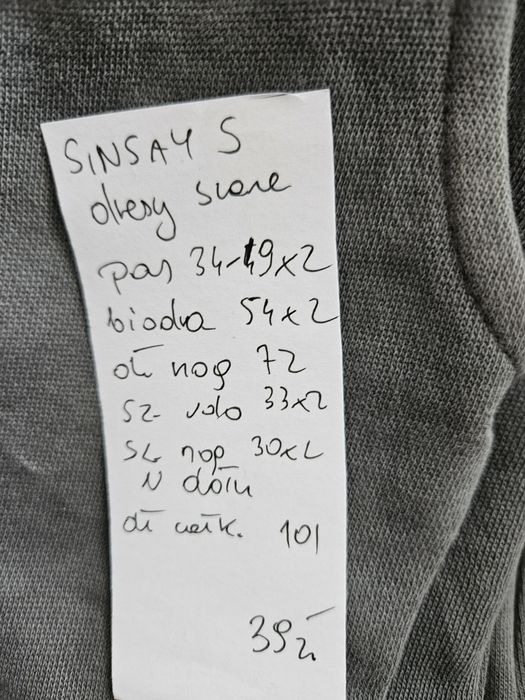 SINSAY S
dresy szare
pas 34-49x2
biodra 54x2
dł nog 72
sz. udo 33x2
sz. nog 30x2
w dołu
dł całk. 101
39 zł